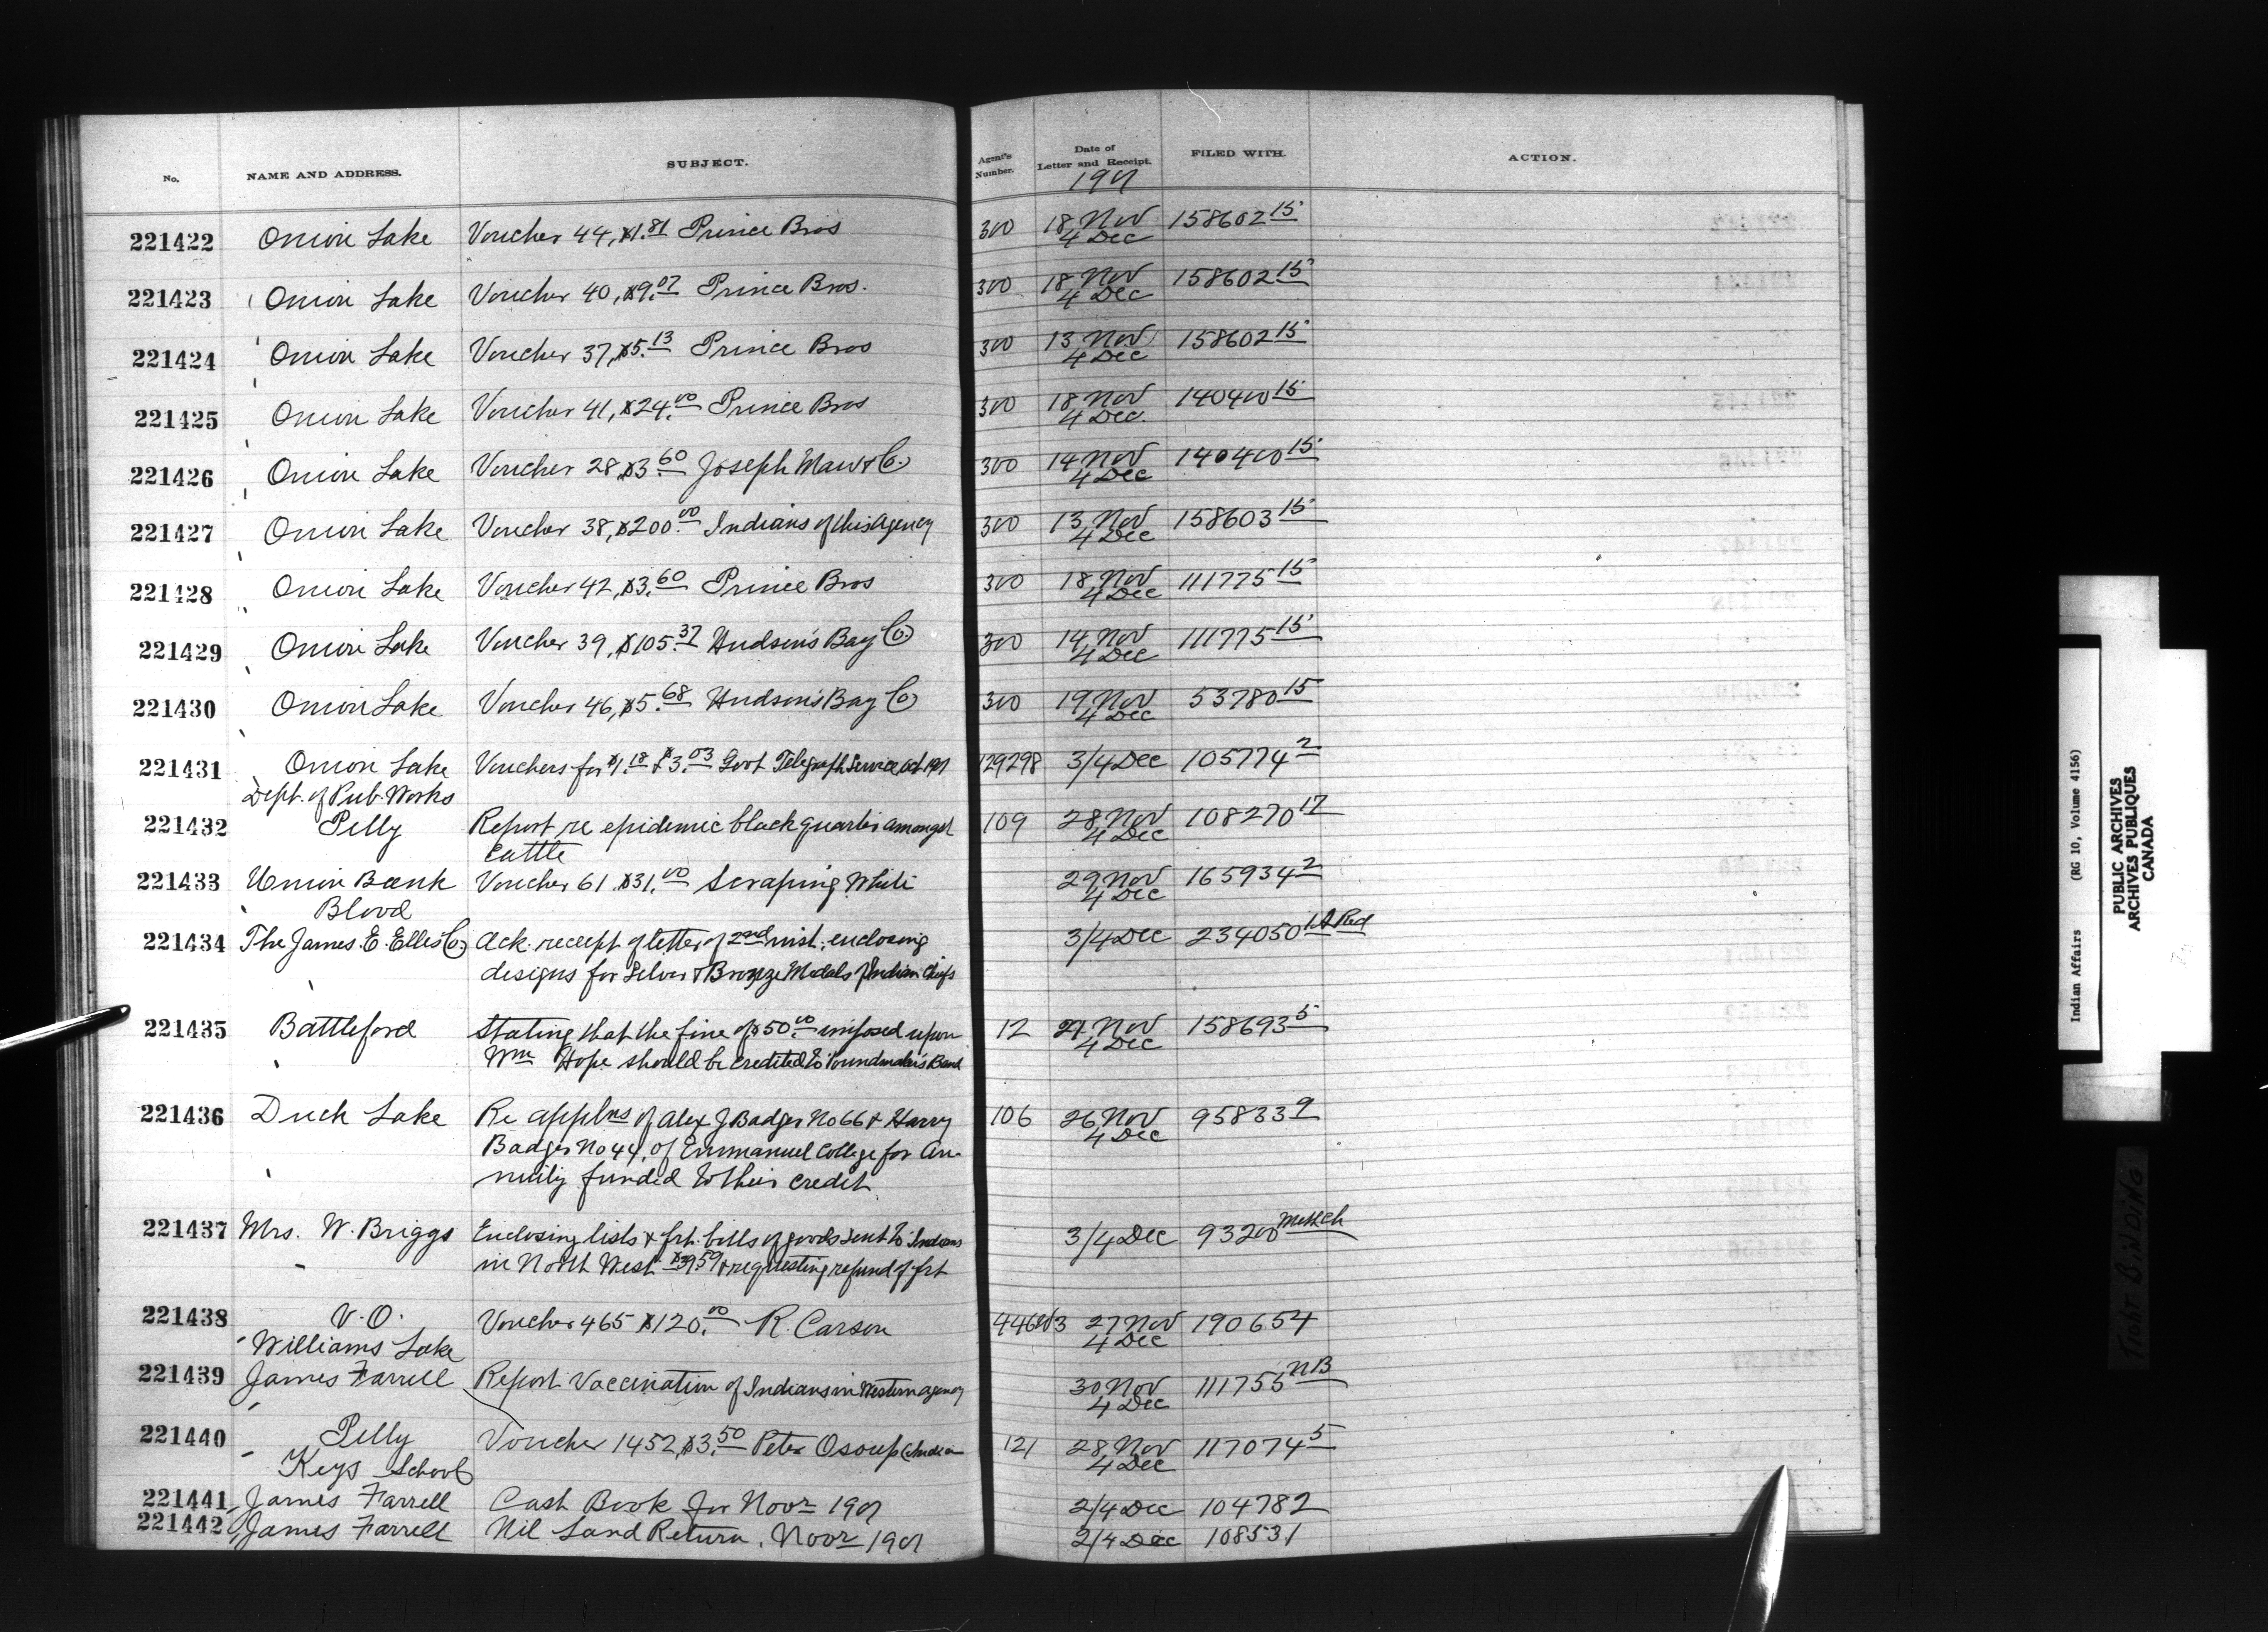 No. NAME AND ADDRESS. SUBJECT. Agent's Number. Date of Letter and Receipt. FILED WITH. ACTION.
1901
221422 Onion Lake Voucher 44, $1.81 Prince Bros 300 18 Nov 158602 15
4 Dec
221423 Onion Lake Voucher 40, $9.07 Prince Bros. 300 18 Nov 158602 15
4 Dec
221424 Onion Lake Voucher 37, $5.13 Prince Bros 300 13 Nov 158602 15
4 Dec
221425 Onion Lake Voucher 41, $24.00 Prince Bros 300 18 Nov 140400 15
4 Dec.
221426 Onion Lake Voucher 28, $3.60 Joseph Maw & Co. 300 14 Nov 140400 15
4 Dec
221427 Onion Lake Voucher 38, $200.00 Indians of this Agency 300 13 Nov 158603 15
4 Dec
221428 Onion Lake Voucher 42, $3.60 Prince Bros 300 18 Nov 111775 15
4 Dec
221429 Onion Lake Voucher 39, $105.37 Hudson's Bay Co. 300 14 Nov 111775 15
4 Dec
221430 Onion Lake Voucher 46, $5.68 Hudson's Bay Co 300 19 Nov 53780 15
4 Dec
221431 Onion Lake Vouchers for $1.18 & $3.03 Govt Telegraph Service, Oct 1901 129298 3/4 Dec 105774 2
Dept. of Pub. Works
221432 Pelly Report re epidemic black quarter amongst 109 28 Nov 108270 17
cattle 4 Dec
221433 Union Bank Voucher 61. $31.00 Scraping White 29 Nov 165934 2
Blood 4 Dec
221434 The James. E. Ellis Co. Ack. receipt of letter of 2nd inst. enclosing 3/4 Dec 234050 1A Red
designs for Silver & Bronze Medals for Indian Chiefs
221435 Battleford Stating that the fine of $50.00 imposed upon 12 27 Nov 158693 5
Wm Hope should be credited to Poundmaker's Band 4 Dec
221436 Duck Lake Re applns of Alex J Badger No 66 & Harry 106 26 Nov 95833 9
Badger No 44, of Emmanuel College for An- 4 Dec
nuity funded to their credit
221437 Mrs. W. Briggs Enclosing lists & frt. bills of goods sent to Indians 3/4 Dec 93200
in North West & requesting refund of frt
221438 V.O. Voucher 465 $120.00 R. Carson 27 Nov 190654
Williams Lake 4 Dec
221439 James Farrell Report Vaccination of Indians in Western agency 30 Nov 111755 NB
4 Dec
221440 Pelly Voucher 1452, $3.50 Peter Osoup 121 28 Nov 117074 5
Keys School 4 Dec
221441 James Farrell Cash Book for Novr 1901 2/4 Dec 104782
221442 James Farrell Nil Land Return, Novr 1901 2/4 Dec 108531
Indian Affairs (RG 10, Volume 4156)
PUBLIC ARCHIVES
ARCHIVES PUBLIQUES
CANADA
TIGHT BINDING